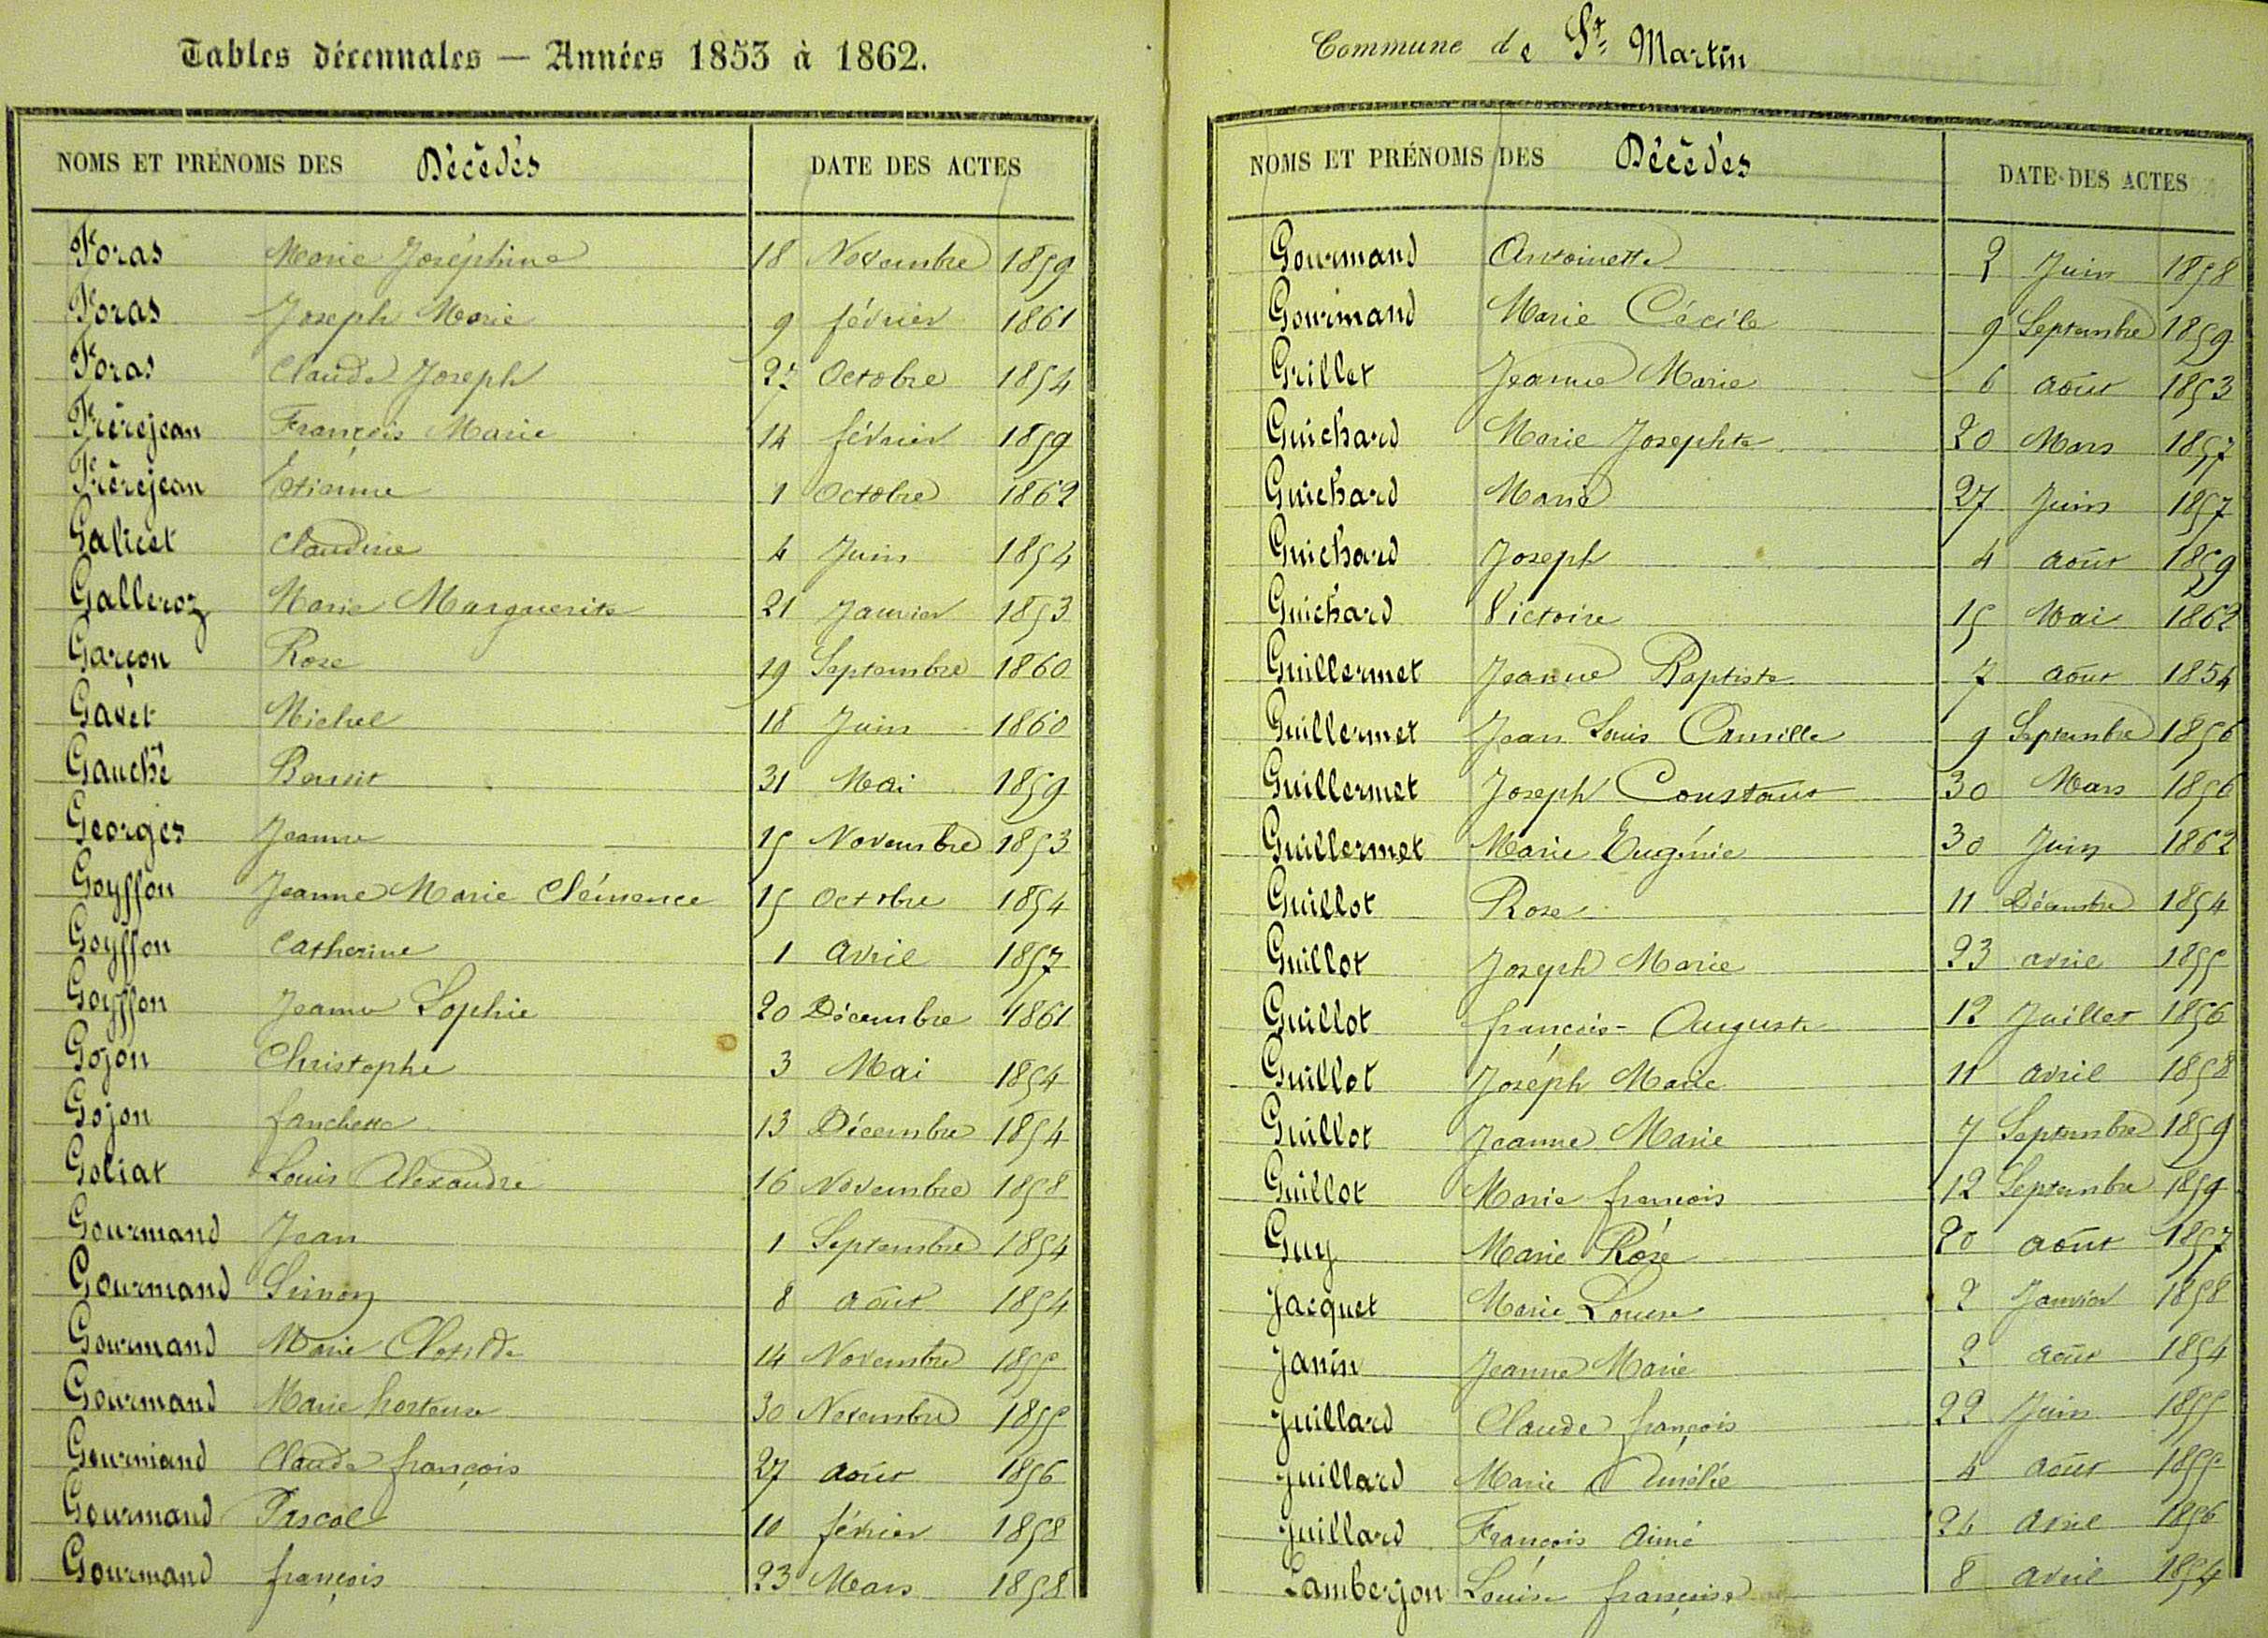 Tables décennales — Années 1853 à 1862.
NOMS ET PRÉNOMS DES Décédés DATE DES ACTES
Foras Marie Joséphine 18 Novembre 1859
Foras Joseph Marie 9 février 1861
Foras Claude Joseph 27 Octobre 1854
Frèrejean François Marie 14 février 1859
Frèrejean Etienne 1 Octobre 1862
Galicet Claudine 4 Juin 1854
Galleroz Marie Marguerite 21 Janvier 1853
Garçon Rose 19 Septembre 1860
Gavet Michel 18 Juin 1860
Gauché Benoit 31 Mai 1859
Georges Jeanne 15 Novembre 1853
Goyffon Jeanne Marie Clémence 15 Octobre 1854
Goyffon Catherine 1 Avril 1857
Goyffon Jeanne Sophie 20 Décembre 1861
Gojon Christophe 3 Mai 1854
Gojon fanchette 13 Décembre 1854
Goliat Louis Alexandre 16 Novembre 1858
Gourmand Jean 1 Septembre 1854
Gourmand Simon 8 août 1854
Gourmand Marie Clotilde 14 Novembre 1855
Gourmand Marie hortense 30 Novembre 1855
Gourmand Claude françois 27 août 1856
Gourmand Pascal 10 février 1858
Gourmand françois 23 Mars 1858
Commune de St. Martin
NOMS ET PRÉNOMS DES Décédés DATE DES ACTES
Gourmand Antoinette 2 Juin 1858
Gourmand Marie Cécile 9 Septembre 1859
Grillet Jeanne Marie 6 août 1853
Guichard Marie Josephte 20 Mars 1857
Guichard Marie 27 Juin 1857
Guichard Joseph 4 août 1859
Guichard Victoire 15 Mai 1862
Guillermet Jeanne Baptiste 7 août 1854
Guillermet Jean Louis Camille 9 Septembre 1856
Guillermet Joseph Constant 30 Mars 1856
Guillermet Marie Eugénie 30 Juin 1862
Guillot Rose 11 Décembre 1854
Guillot Joseph Marie 23 avril 1855
Guillot françois - Auguste 12 Juillet 1856
Guillot Joseph Marie 11 avril 1858
Guillot Jeanne Marie 7 Septembre 1859
Guillot Marie francois 12 Septembre 1859
Guy Marie Rose 20 août 1857
Jacquet Marie Louise 2 Janvier 1858
Janin Jeanne Marie 2 août 1854
Juillard Claude françois 22 Juin 1855
Juillard Marie Aurélie 4 août 1855
Juillard François Aimé 24 avril 1856
Lamberjon Louise françoise 8 avril 1854